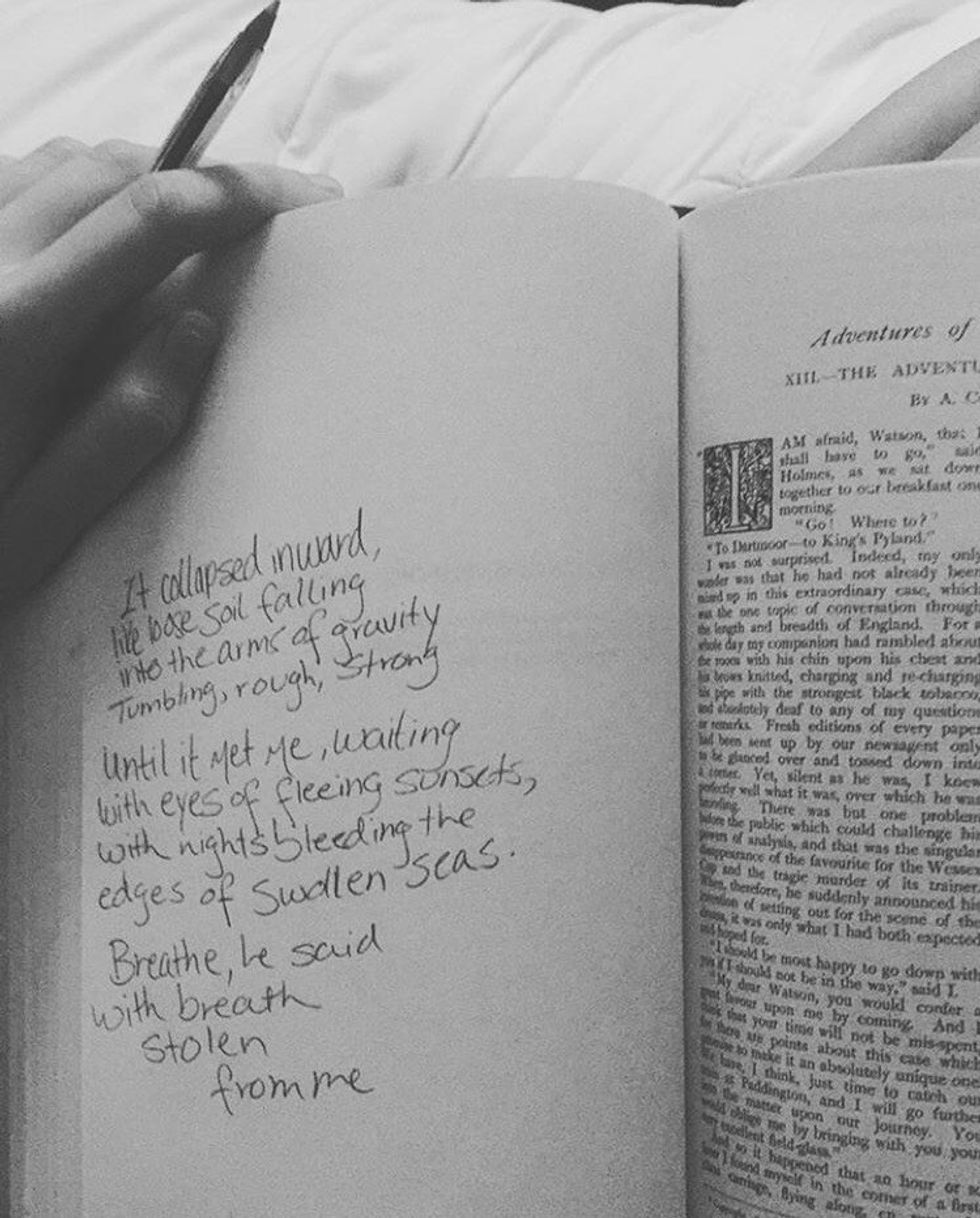 It collapsed inward,
like loose soil falling
into the arms of gravity
Tumbling, rough, strong
Until it met me, waiting
with eyes of fleeing sunsets,
with nights bleeding the
edges of swollen seas.
Breathe, he said
with breath
stolen
from me
Adventures of
XIII.—THE ADVENTU
By A. C
"I AM afraid, Watson, that I
shall have to go," said
Holmes, as we sat down
together to our breakfast one
morning.
"Go! Where to?"
"To Dartmoor—to King's Pyland."
I was not surprised. Indeed, my only
wonder was that he had not already been
mixed up in this extraordinary case, which
was the one topic of conversation through
the length and breadth of England. For a
whole day my companion had rambled about
the room with his chin upon his chest and
his brows knitted, charging and re-charging
his pipe with the strongest black tobacco,
and absolutely deaf to any of my questions
or remarks. Fresh editions of every paper
had been sent up by our newsagent only
to be glanced over and tossed down into
a corner. Yet, silent as he was, I knew
perfectly well what it was, over which he was
brooding. There was but one problem
before the public which could challenge his
powers of analysis, and that was the singular
disappearance of the favourite for the Wessex
Cup and the tragic murder of its trainer.
When, therefore, he suddenly announced his
intention of setting out for the scene of the
drama, it was only what I had both expected
and hoped for.
"I should be most happy to go down with
you if I should not be in the way," said I.
"My dear Watson, you would confer a
great favour upon me by coming. And I
think that your time will not be mis-spent,
for there are points about this case which
promise to make it an absolutely unique one.
We have, I think, just time to catch our
train at Paddington, and I will go further
into the matter upon our journey. You
would oblige me by bringing with you your
very excellent field-glass."
And so it happened that an hour or so
later I found myself in the corner of a first-
class carriage, flying along, en